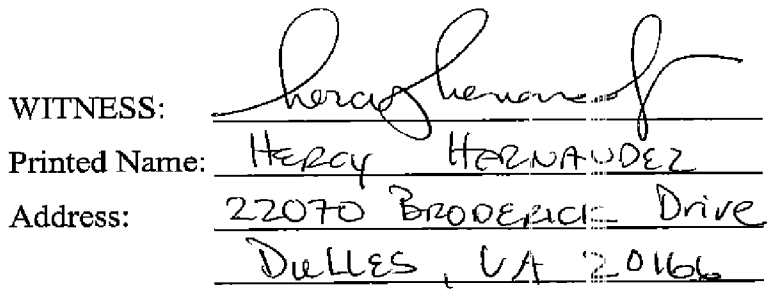 WITNESS: Hercy Hernandez
Printed Name: HERCY HERNANDEZ
Address: 22070 BRODERICK Drive
DULLES, VA 20166